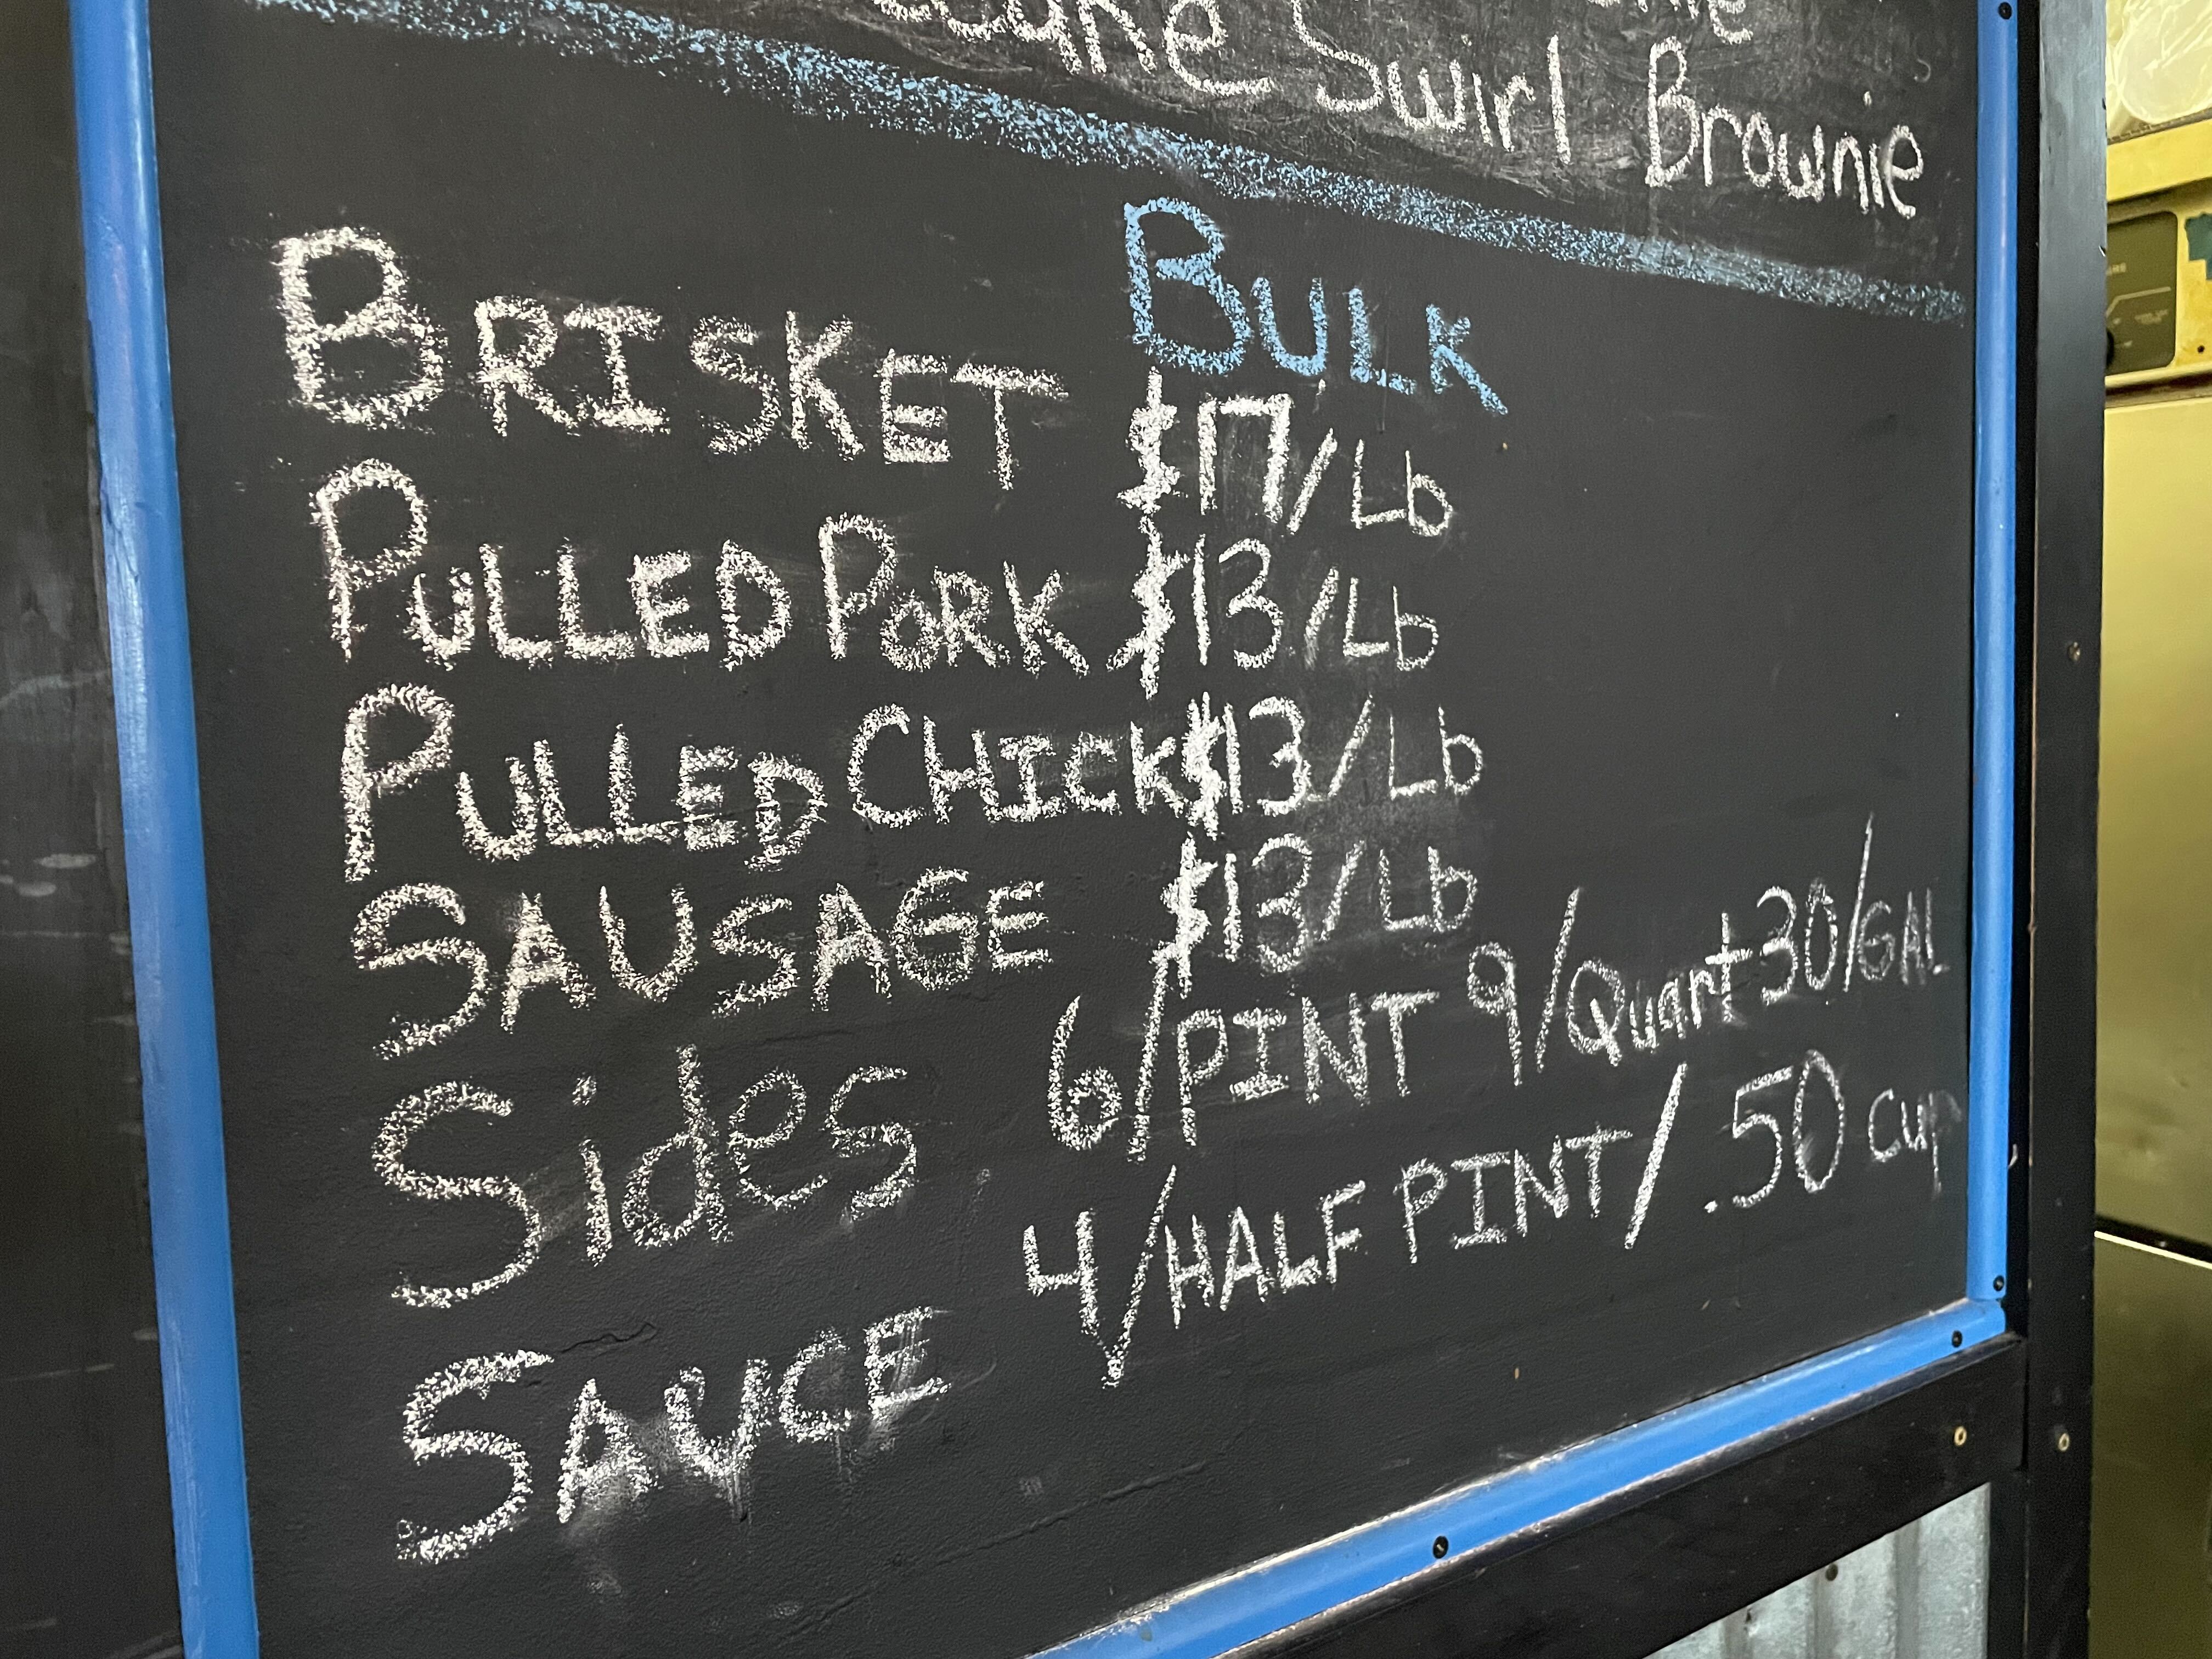 Swirl Brownie
BULK
BRISKET $17/Lb
PULLED PORK $13/Lb
PULLED CHICK $13/Lb
SAUSAGE $13/Lb
Sides 6/PINT 9/Quart 30/GAL
SAUCE 4/HALF PINT/.50 cup